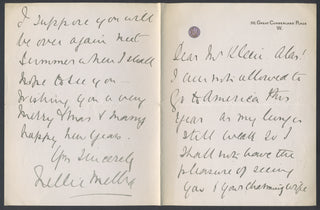 30, Great Cumberland Place
W.
Dear Mr Klein Alas!
I am not allowed to
go to America this
year as my lungs
still weak so I
shall not have the
pleasure of seeing
you & your charming wife
I suppose you will
be over again next
Summer when I shall
hope to see you –
Wishing you a very
Merry Xmas & many
happy New Years.
Yrs Sincerely
Nellie Melba